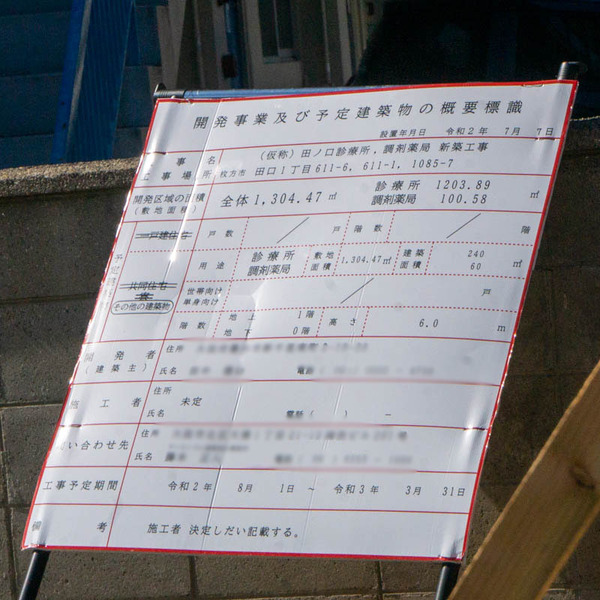 開発事業及び予定建築物の概要標識
設置年月日 令和2年 7月 7日
事名 (仮称)田ノ口診療所，調剤薬局 新築工事
工事場所 枚方市 田口1丁目611-6, 611-1, 1085-7
開発区域の面積 (敷地面積) 全体1,304.47㎡ 診療所 1203.89 ㎡
調剤薬局 100.58
一戸建住宅 戸数 ／ 戸 階数 ／ 階
用途 診療所 調剤薬局 敷地面積 1,304.47㎡ 建築面積 240 60 ㎡
共同住宅
その他の建築物
世帯向け 単身向け ／ 戸
階数 地上 1階 高さ 6.0 m
地下 0階
開発者 (建築主) 住所
氏名 電話
施工者 住所
氏名 未定 電話( ) －
い合わせ先 住所
氏名
工事予定期間 令和2年 8月 1日 ～ 令和3年 3月 31日
備考 施工者 決定しだい記載する。